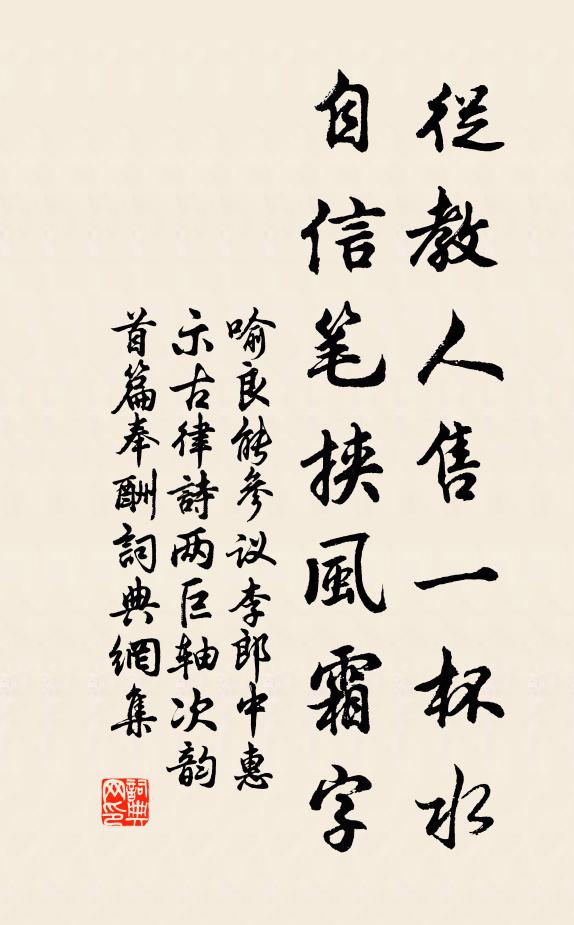 從教人售一杯水
自信笔挟風霜字
喻良能參议李郎中惠
示古律詩两巨軸次韵
首篇奉酬詞典網集
詞典
网印